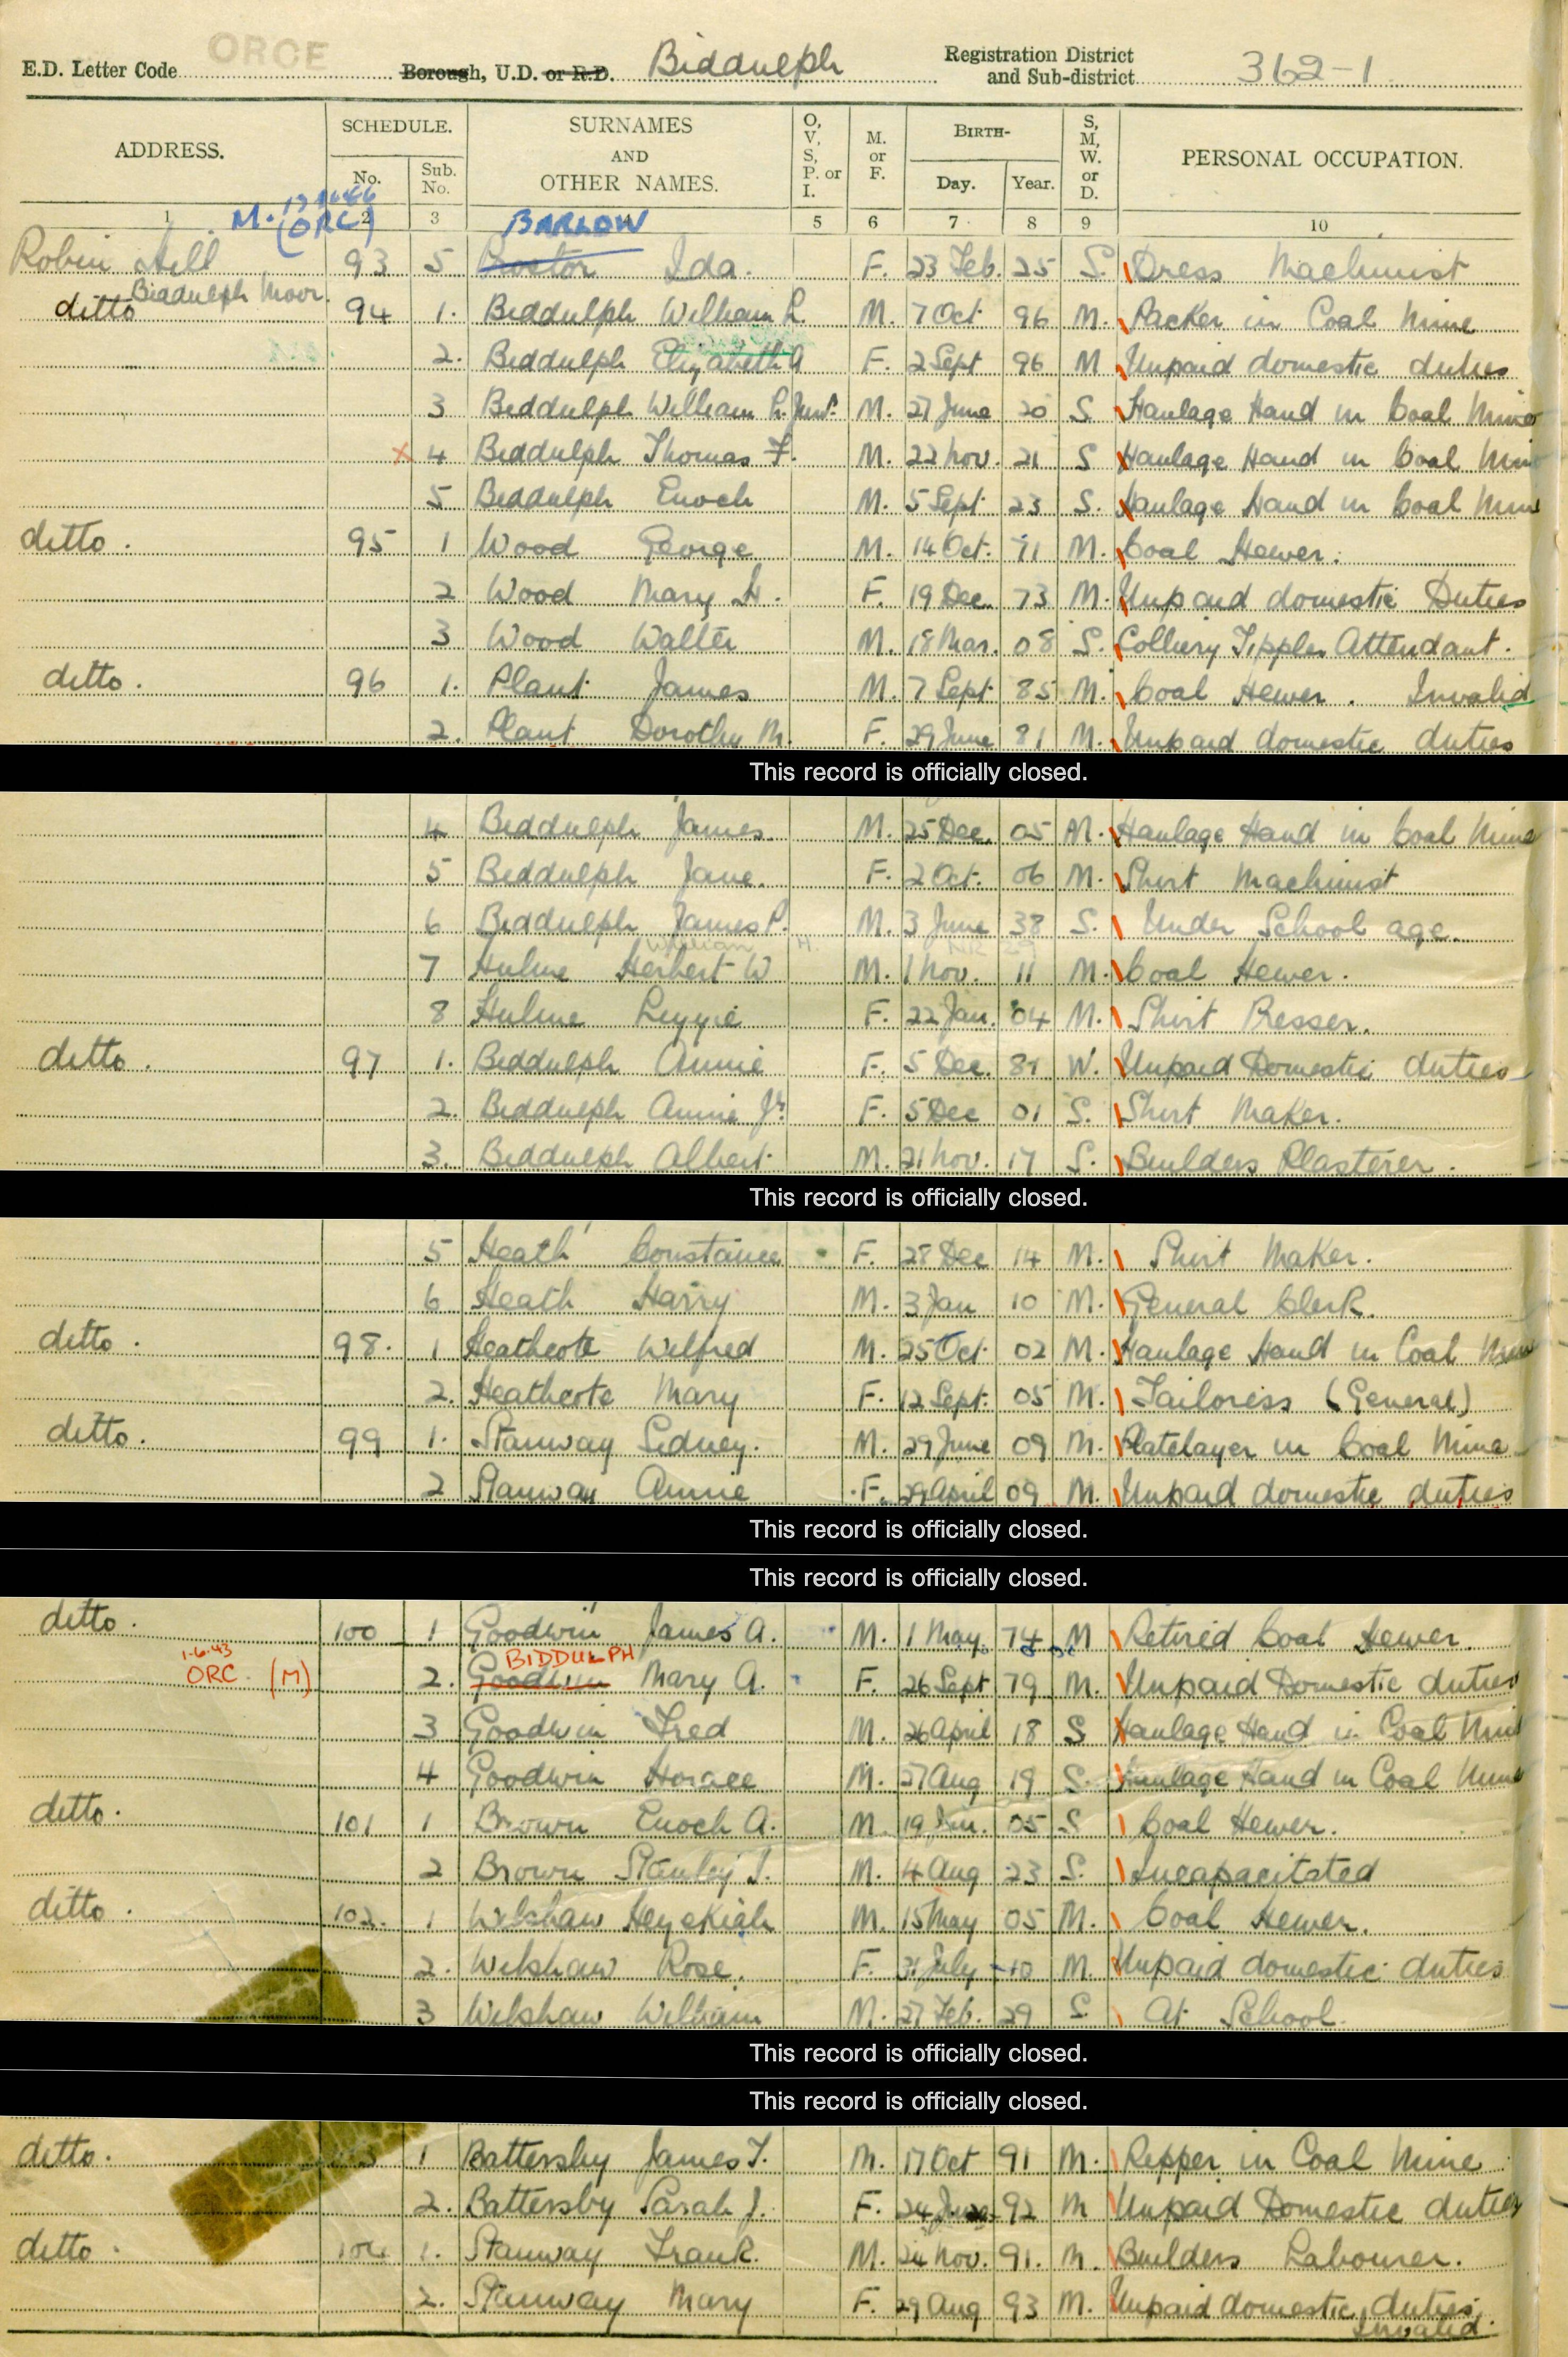 E.D. Letter Code ORCE Borough, U.D. or R.D. Biddulph Registration District and Sub-district 362-1
ADDRESS. SCHEDULE. No. Sub. No. SURNAMES AND OTHER NAMES. O, V, S, P. or I. M. or F. BIRTH- Day. Year. S, M, W. or D. PERSONAL OCCUPATION.
1 2 3 4 5 6 7 8 9 10
M. (ORC) BARLOW
Robin Hill 93 5 Proctor Ida. F. 23 Feb. 25 S. Dress Machinist
Biddulph Moor.
ditto 94 1. Biddulph William L. M. 7 Oct 96 M. Packer in Coal Mine
2. Biddulph Elizabeth A F. 2 Sept 96 M Unpaid domestic duties
3 Biddulph William L. Junr. M. 27 June 20 S Haulage Hand in Coal Mine
x 4 Biddulph Thomas F. M. 22 Nov. 21 S Haulage Hand in Coal Mine
5 Biddulph Enoch M. 5 Sept 23 S. Haulage Hand in Coal Mine
ditto. 95 1 Wood George M. 14 Oct. 71 M. Coal Hewer.
2 Wood Mary H. F. 19 Dec. 73 M. Unpaid domestic Duties
3 Wood Walter M. 18 Mar. 08 S. Colliery Tippler Attendant.
ditto. 96 1. Plant James M. 7 Sept 85 M. Coal Hewer. Invalid
2. Plant Dorothy M. F. 29 June 81 M. Unpaid domestic duties
This record is officially closed.
4 Biddulph James. M. 25 Dec. 05 M. Haulage Hand in Coal Mine
5 Biddulph Jane. F. 2 Oct. 06 M. Shirt Machinist
6 Biddulph James P. M. 3 June 38 S. Under School age.
William H.
7 Hulme Herbert W M. 1 Nov. 11 M. Coal Hewer.
8 Hulme Lizzie F. 22 Jan. 04 M. Shirt Presser.
ditto. 97 1. Biddulph Annie F. 5 Dec. 81 W. Unpaid Domestic duties
2. Biddulph Annie Jr. F. 5 Dec 01 S. Shirt Maker.
3. Biddulph Albert M. 21 Nov. 17 S. Builders Plasterer.
This record is officially closed.
5 Heath Constance F. 28 Dec 14 M. Shirt Maker.
6 Heath Harry M. 3 Jan 10 M. General Clerk.
ditto. 98. 1 Heathcote Wilfred M. 25 Oct. 02 M. Haulage Hand in Coal Mine
2. Heathcote Mary F. 12 Sept. 05 M. Tailoress (General)
ditto. 99 1. Stanway Sidney. M. 29 June 09 M. Platelayer in Coal Mine
2 Stanway Annie F. 29 April 09 M. Unpaid domestic duties
This record is officially closed.
This record is officially closed.
ditto. 100 1 Goodwin James A. M. 1 May. 74 M Retired Coal Hewer.
1.6.43 BIDDULPH
ORC (M) 2. Goodwin Mary A. F. 26 Sept 79 M. Unpaid Domestic duties
3 Goodwin Fred M. 26 April 18 S Haulage Hand in Coal Mine
4 Goodwin Horace M. 27 Aug 19 S. Haulage Hand in Coal Mine
ditto. 101 1 Brown Enoch A. M. 19 05 S Coal Hewer.
2 Brown Stanley J. M. 4 Aug 23 S. Incapacitated
ditto. 102. 1 Welshaw Hezekiah M. 15 May 05 M. Coal Hewer.
2. Welshaw Rose. F. 31 July 10 M. Unpaid domestic duties
3 Welshaw William M. 27 Feb. 29 S. At School.
This record is officially closed.
This record is officially closed.
ditto. 103 1 Battersby James T. M. 17 Oct 91 M. Ripper in Coal Mine
2. Battersby Sarah J. F. 24 June 92 M Unpaid Domestic duties
ditto. 104 1. Stanway Frank. M. 24 Nov. 91. M. Builders Labourer.
2. Stanway Mary F. 29 Aug 93 M. Unpaid domestic duties.
Invalid.